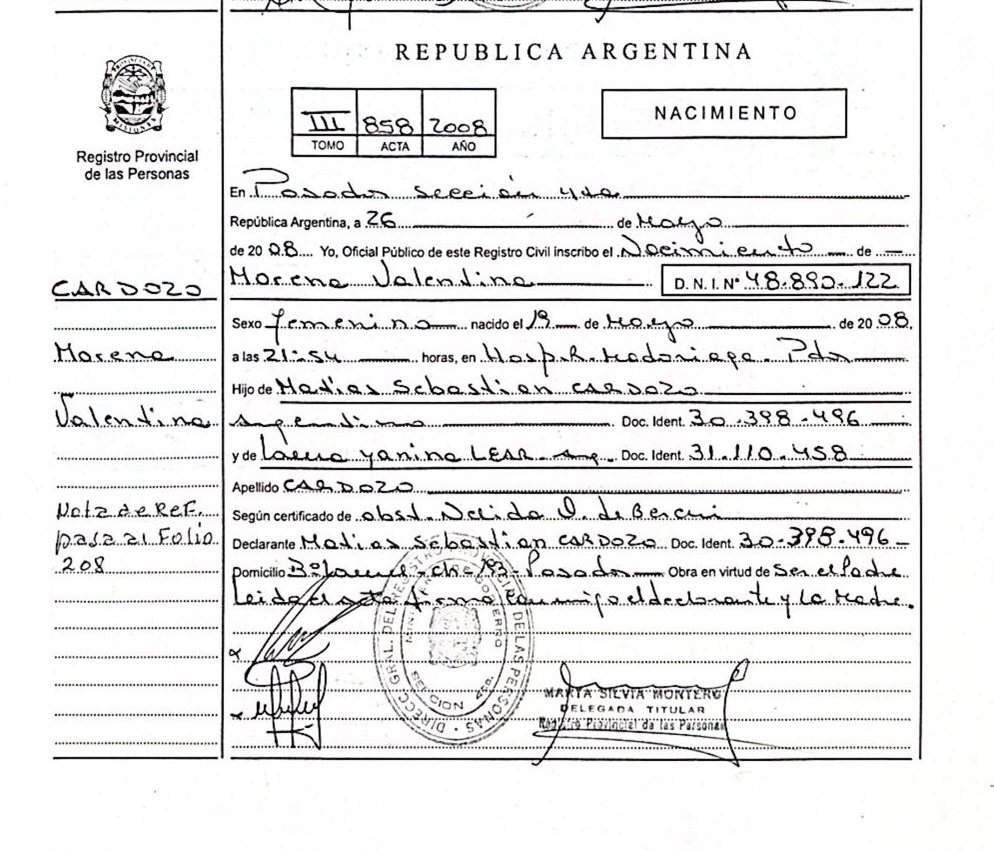 REPUBLICA ARGENTINA
PROVINCIA DE MISIONES
Registro Provincial
de las Personas
III 858 2008
TOMO ACTA AÑO
NACIMIENTO
En Posadas sección 4ta
República Argentina, a 26 de Mayo
de 20 08 Yo, Oficial Público de este Registro Civil inscribo el Nacimiento de
Morena Valentina D.N.I. N° 48.890.122
Sexo femenino nacido el 19 de Mayo de 20 08,
a las 21:54 horas, en Hosp. R. Madariaga. Pdas
Hijo de Matias Sebastian CARDOZO
argentino Doc. Ident. 30.398.496
y de Laura yanina LEAR arg. Doc. Ident. 31.110.458
Apellido CARDOZO
Según certificado de obst. Nelida de
Declarante Matias Sebastian CARDOZO Doc. Ident. 30.398.496
Domicilio Posadas Obra en virtud de Ser el Padre
Leida el acta firma conmigo el declarante y la Madre.
CARDOZO
Morena
Valentina
Nota de Ref.
pasa al Folio
208
DIRECC. GRAL. DEL REGISTRO PROVINCIAL DE LAS PERSONAS
GOBIERNO
MARTA SILVIA MONTERO
DELEGADA TITULAR
Registro Provincial de las Personas